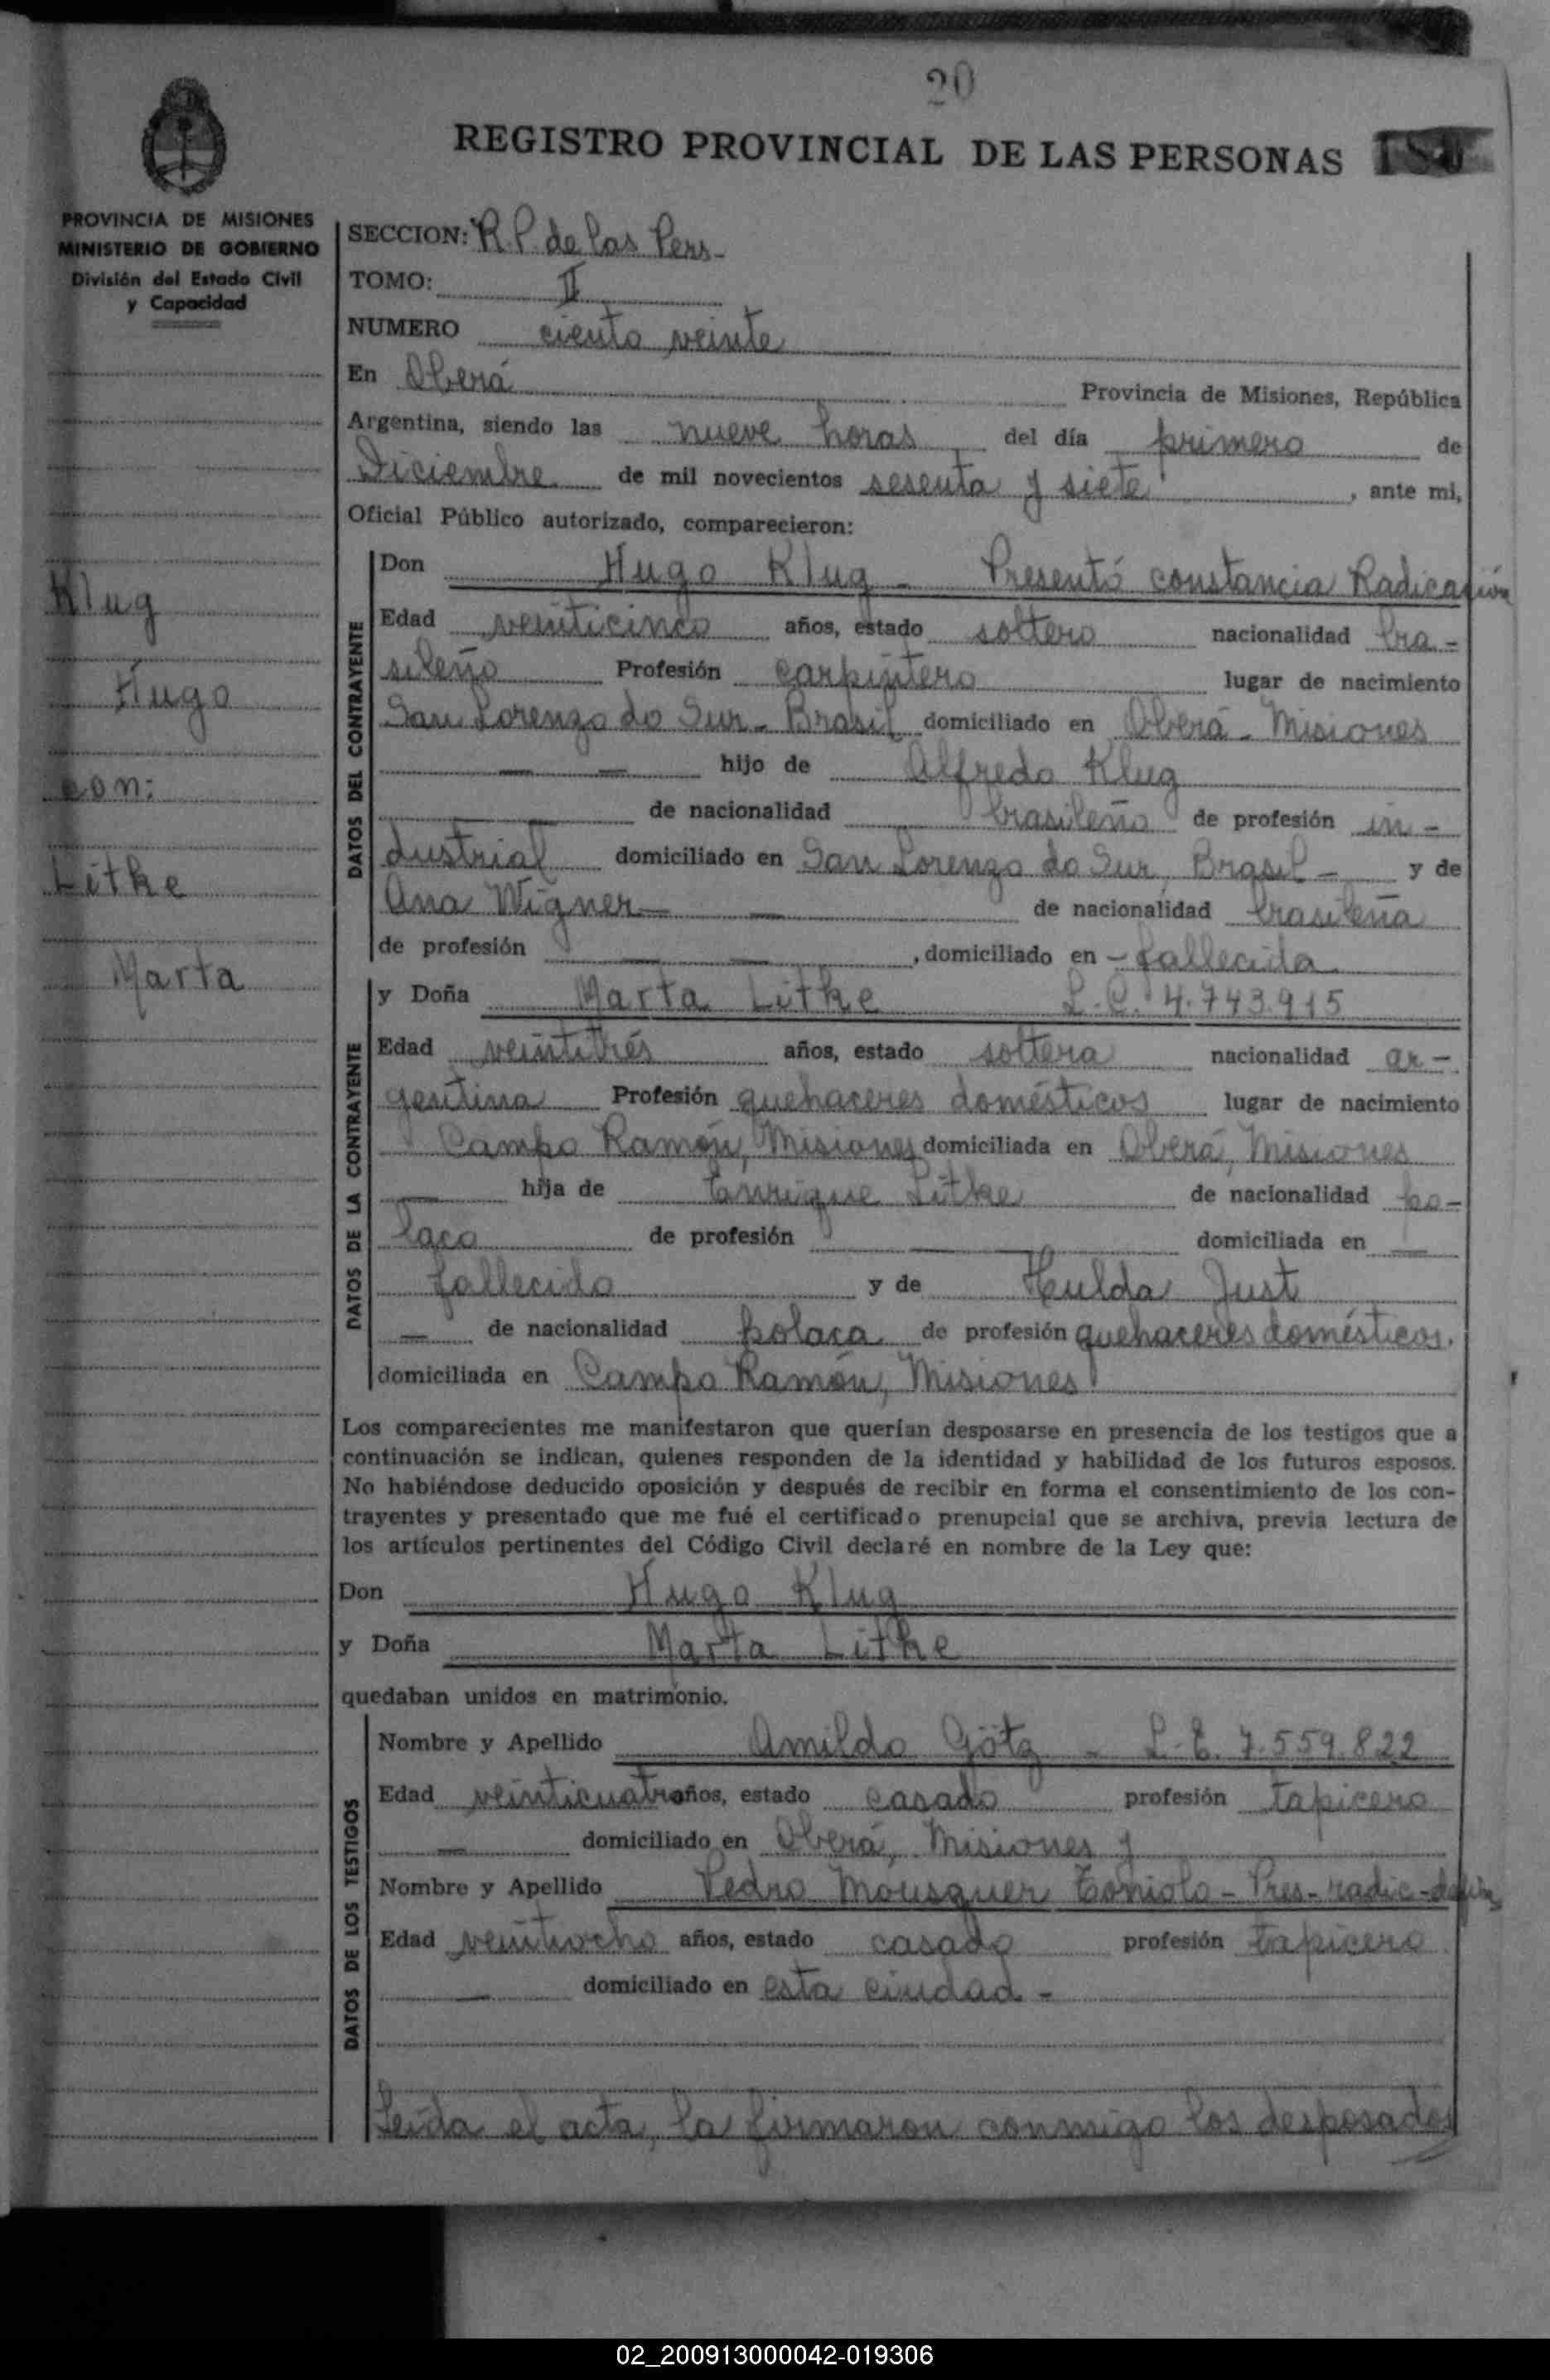 20
REGISTRO PROVINCIAL DE LAS PERSONAS
PROVINCIA DE MISIONES
MINISTERIO DE GOBIERNO
División del Estado Civil
y Capacidad
SECCION: R.P. de las Pers-
TOMO: II
NUMERO ciento veinte
En Oberá Provincia de Misiones, República
Argentina, siendo las nueve horas del día primero de
Diciembre de mil novecientos sesenta y siete, ante mi,
Oficial Público autorizado, comparecieron:
Klug
Hugo
con:
Litke
Marta
DATOS DEL CONTRAYENTE
Don Hugo Klug - Presentó constancia Radicación
Edad veinticinco años, estado soltero nacionalidad bra-
sileño Profesión carpintero lugar de nacimiento
San Lorenzo do Sur - Brasil domiciliado en Oberá - Misiones
— — hijo de Alfredo Klug
de nacionalidad brasileño de profesión in-
dustrial domiciliado en San Lorenzo do Sur, Brasil - y de
Ana Wigner — — de nacionalidad brasileña
de profesión — —, domiciliado en - fallecida
DATOS DE LA CONTRAYENTE
y Doña Marta Litke L.C. 4.743.915
Edad veintitrés años, estado soltera nacionalidad ar-
gentina Profesión quehaceres domésticos lugar de nacimiento
Campo Ramón, Misiones domiciliada en Oberá, Misiones
— hija de Enrique Litke de nacionalidad po-
laco de profesión — domiciliada en —
fallecido y de Hulda Just
— de nacionalidad polaca de profesión quehaceres domésticos.
domiciliada en Campo Ramón, Misiones
Los comparecientes me manifestaron que querían desposarse en presencia de los testigos que a
continuación se indican, quienes responden de la identidad y habilidad de los futuros esposos.
No habiéndose deducido oposición y después de recibir en forma el consentimiento de los con-
trayentes y presentado que me fué el certificado prenupcial que se archiva, previa lectura de
los artículos pertinentes del Código Civil declaré en nombre de la Ley que:
Don Hugo Klug
y Doña Marta Litke
quedaban unidos en matrimonio.
DATOS DE LOS TESTIGOS
Nombre y Apellido Amildo Götz - L.E. 7.559.822
Edad veinticuatro años, estado casado profesión tapicero
— domiciliado en Oberá, Misiones y
Nombre y Apellido Pedro Mousquer Toniolo - Pres- radic-
Edad veintiocho años, estado casado profesión tapicero
— domiciliado en esta ciudad -
Leída el acta, la firmaron conmigo los desposados
02_200913000042-019306